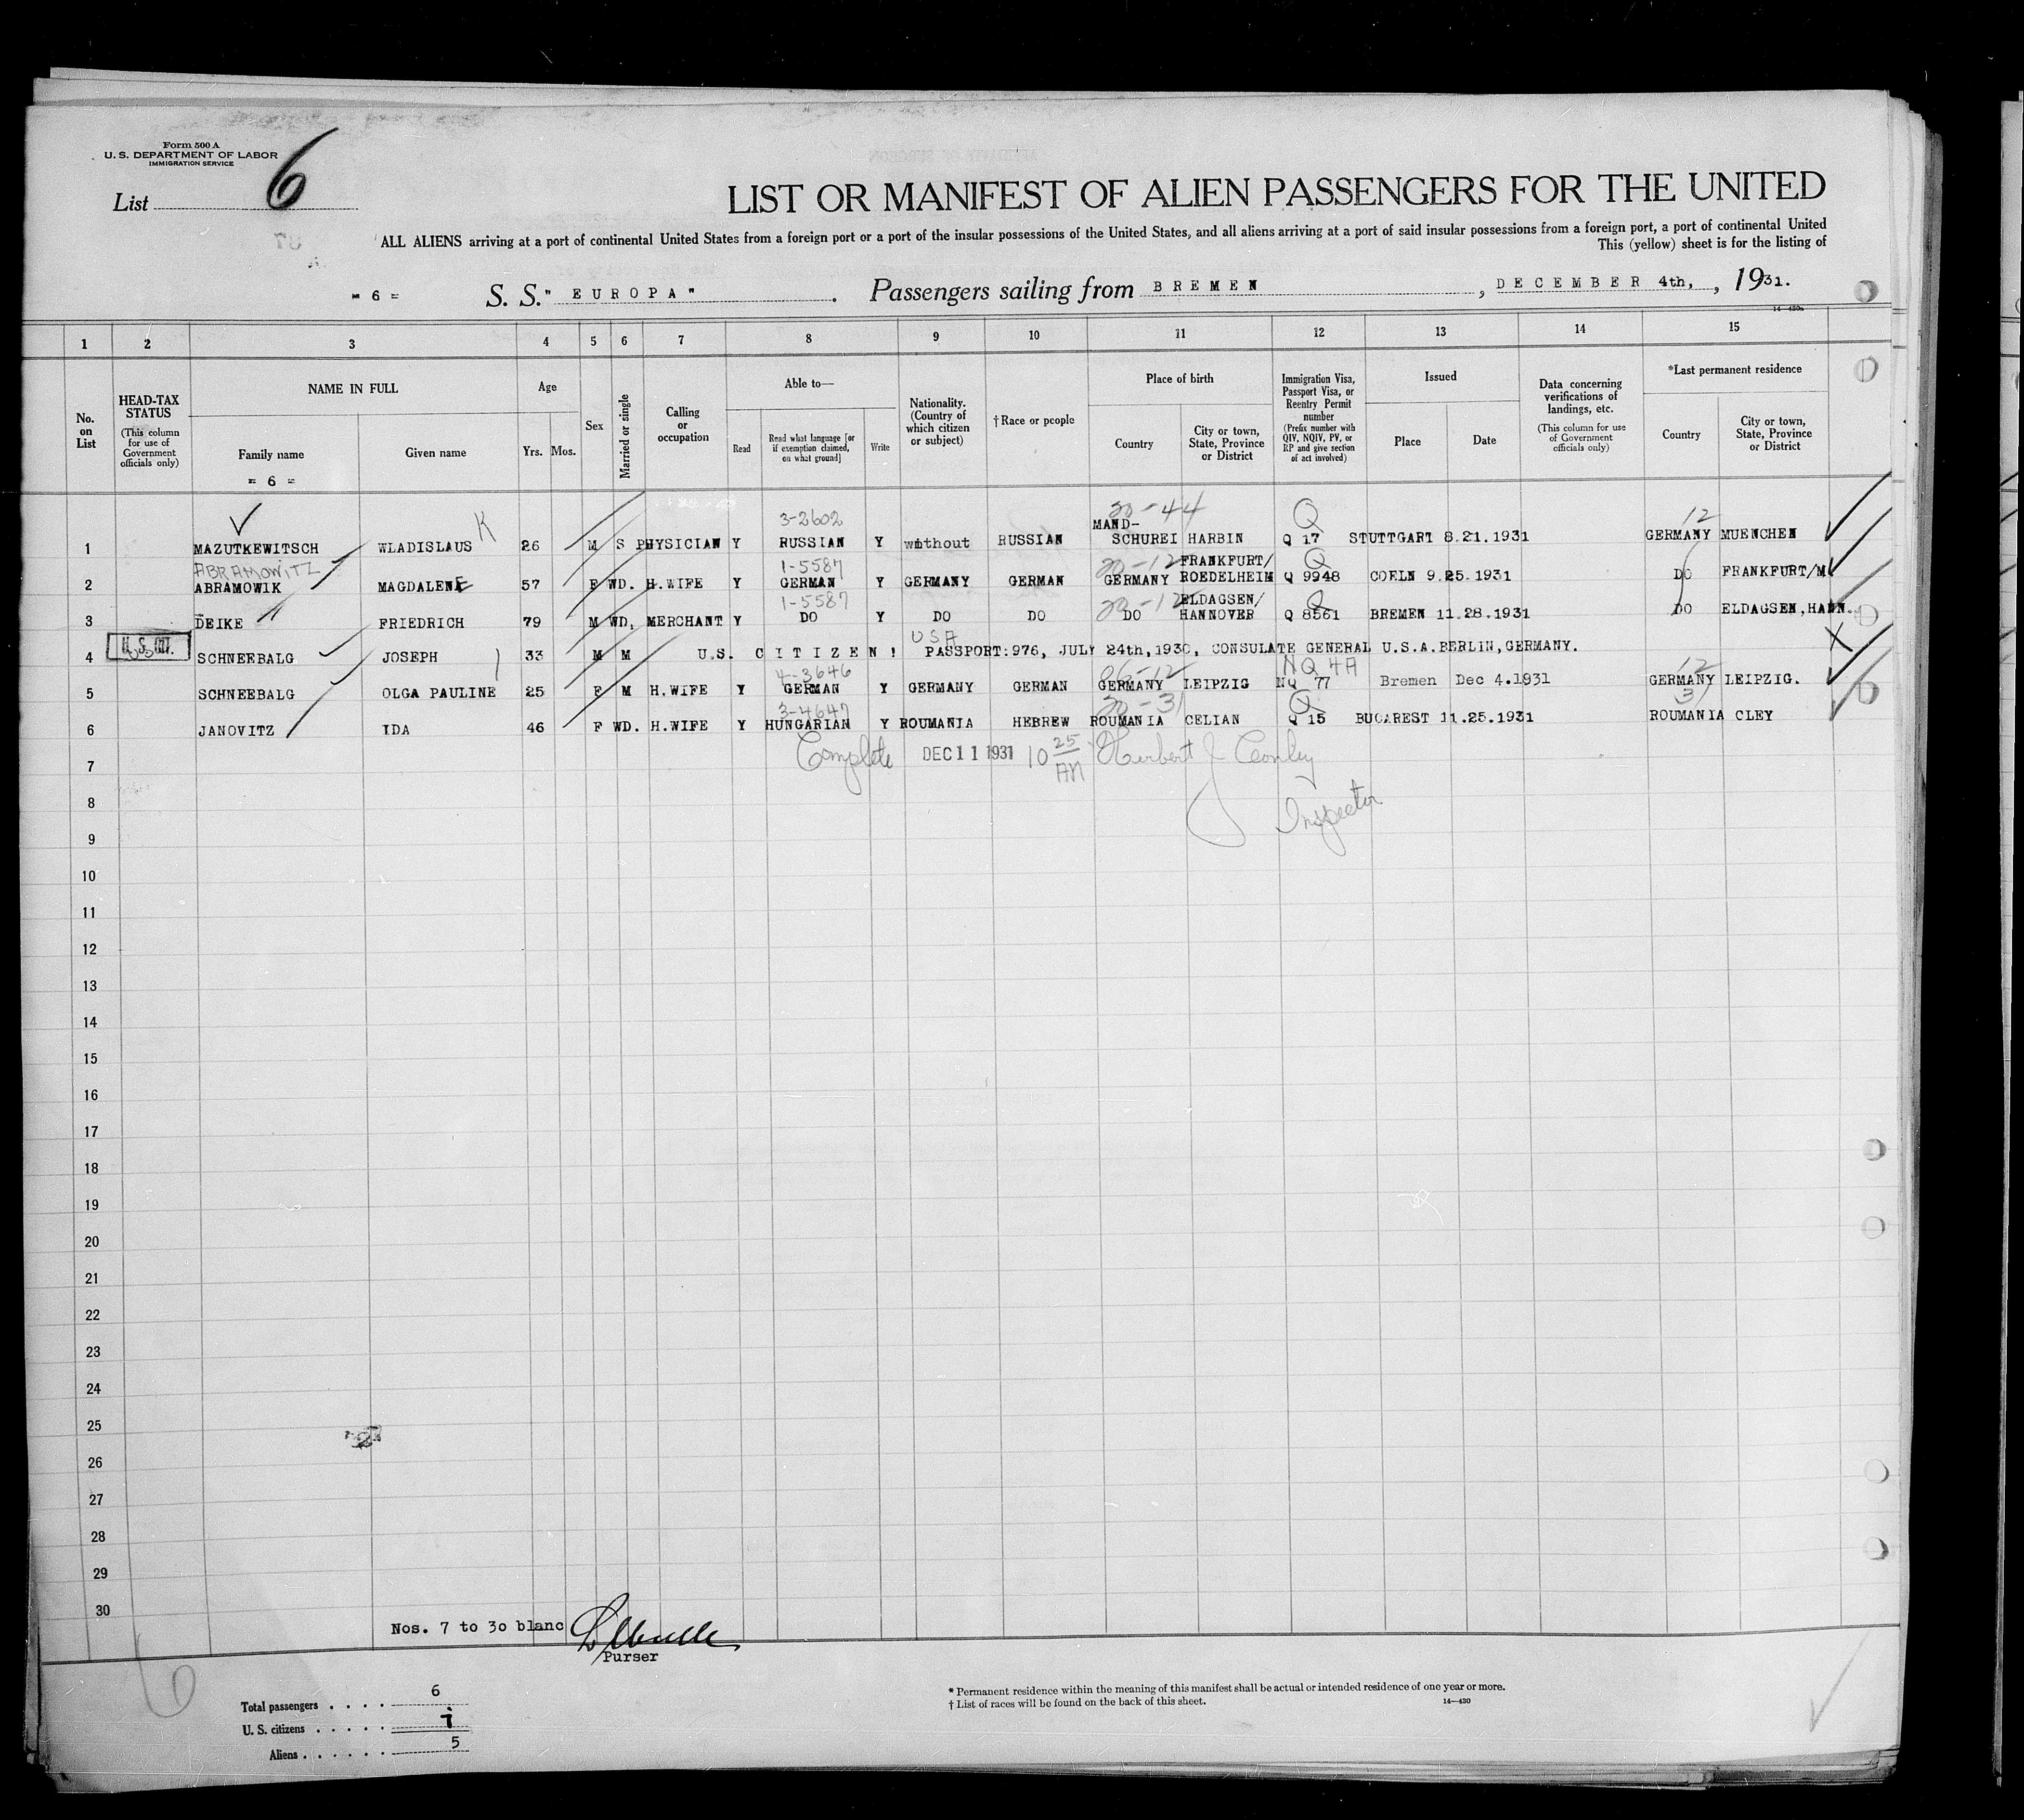 Form 500 A
U. S. DEPARTMENT OF LABOR
IMMIGRATION SERVICE
List 6
LIST OR MANIFEST OF ALIEN PASSENGERS FOR THE UNITED
ALL ALIENS arriving at a port of continental United States from a foreign port or a port of the insular possessions of the United States, and all aliens arriving at a port of said insular possessions from a foreign port, a port of continental United
This (yellow) sheet is for the listing of
= 6 = S. S. " EUROPA" . Passengers sailing from BREMEN , DECEMBER 4th, , 1931.
1 2 3 4 5 6 7 8 9 10 11 12 13 14 15
No. on List
HEAD-TAX STATUS
(This column for use of Government officials only)
NAME IN FULL
Family name
= 6 =
Given name
Age
Yrs. Mos.
Sex
Married or single
Calling or occupation
Able to—
Read
Read what language [or if exemption claimed, on what ground]
Write
Nationality. (Country of which citizen or subject)
†Race or people
Place of birth
Country
City or town, State, Province or District
Immigration Visa, Passport Visa, or Reentry Permit number
(Prefix number with QIV, NQIV, PV, or RP and give section of act involved)
Issued
Place
Date
Data concerning verifications of landings, etc.
(This column for use of Government officials only)
*Last permanent residence
Country
City or town, State, Province or District
K 3-2602 20-44 Q 12
MAND-
1 MAZUTKEWITSCH WLADISLAUS 26 M S PHYSICIAN Y RUSSIAN Y without RUSSIAN SCHUREI HARBIN Q 17 STUTTGART 8.21.1931 GERMANY MUENCHEN
ABRAMOWITZ 1-5587 20-12 FRANKFURT/ Q
2 ABRAMOWIK MAGDALENE 57 F WD. H.WIFE Y GERMAN Y GERMANY GERMAN GERMANY ROEDELHEIM Q 9948 COELN 9.25.1931 DO FRANKFURT/M
1-5587 20-12 ELDAGSEN/ Q
3 DEIKE FRIEDRICH 79 M WD, MERCHANT Y DO Y DO DO DO HANNOVER Q 8561 BREMEN 11.28.1931 DO ELDAGSEN,HANN.
USA
4 SCHNEEBALG JOSEPH 33 M M U.S. CITIZEN! PASSPORT:976, JULY 24th,1930, CONSULATE GENERAL U.S.A.BERLIN,GERMANY.
4-3646 06-12 NQ 4A 12
5 SCHNEEBALG OLGA PAULINE 25 F M H.WIFE Y GERMAN Y GERMANY GERMAN GERMANY LEIPZIG NQ 77 Bremen Dec 4.1931 GERMANY LEIPZIG.
3-4647 20-31 Q 31
6 JANOVITZ IDA 46 F WD. H.WIFE Y HUNGARIAN Y ROUMANIA HEBREW ROUMANIA CELIAN Q 15 BUCAREST 11.25.1931 ROUMANIA CLEY
7 Complete DEC 11 1931 10 25 AM Herbert J Conley
8 Inspector
9
10
11
12
13
14
15
16
17
18
19
20
21
22
23
24
25
26
27
28
29
30
Nos. 7 to 30 blanc
Purser
6
Total passengers . . . . 6
U. S. citizens . . . . . 1
Aliens . . . . . . 5
* Permanent residence within the meaning of this manifest shall be actual or intended residence of one year or more.
† List of races will be found on the back of this sheet.
14—430